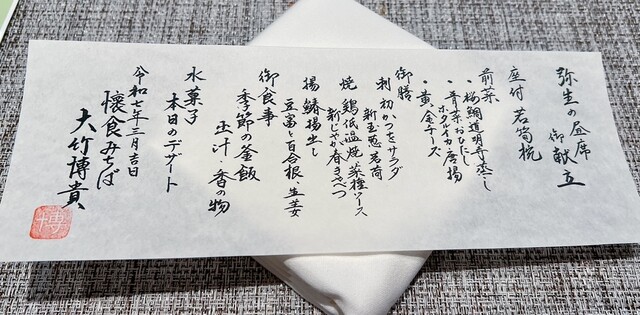 弥生の昼席
御献立
座付 若筍椀
前菜
・桜鯛道明寺蒸し
・青菜おひたし
ホタルイカ唐揚
・黄金チーズ
御膳
刺 初かつをサラダ
新玉葱 茗荷
焼 鶏低温焼 菜種ソース
新じゃが 春きゃべつ
揚 鰆揚出し
豆富と百合根、生姜
御食事
季節の釜飯
玉汁・香の物
水菓子
本日のデザート
令和七年三月吉日
懐食みちば
大竹博貴
博